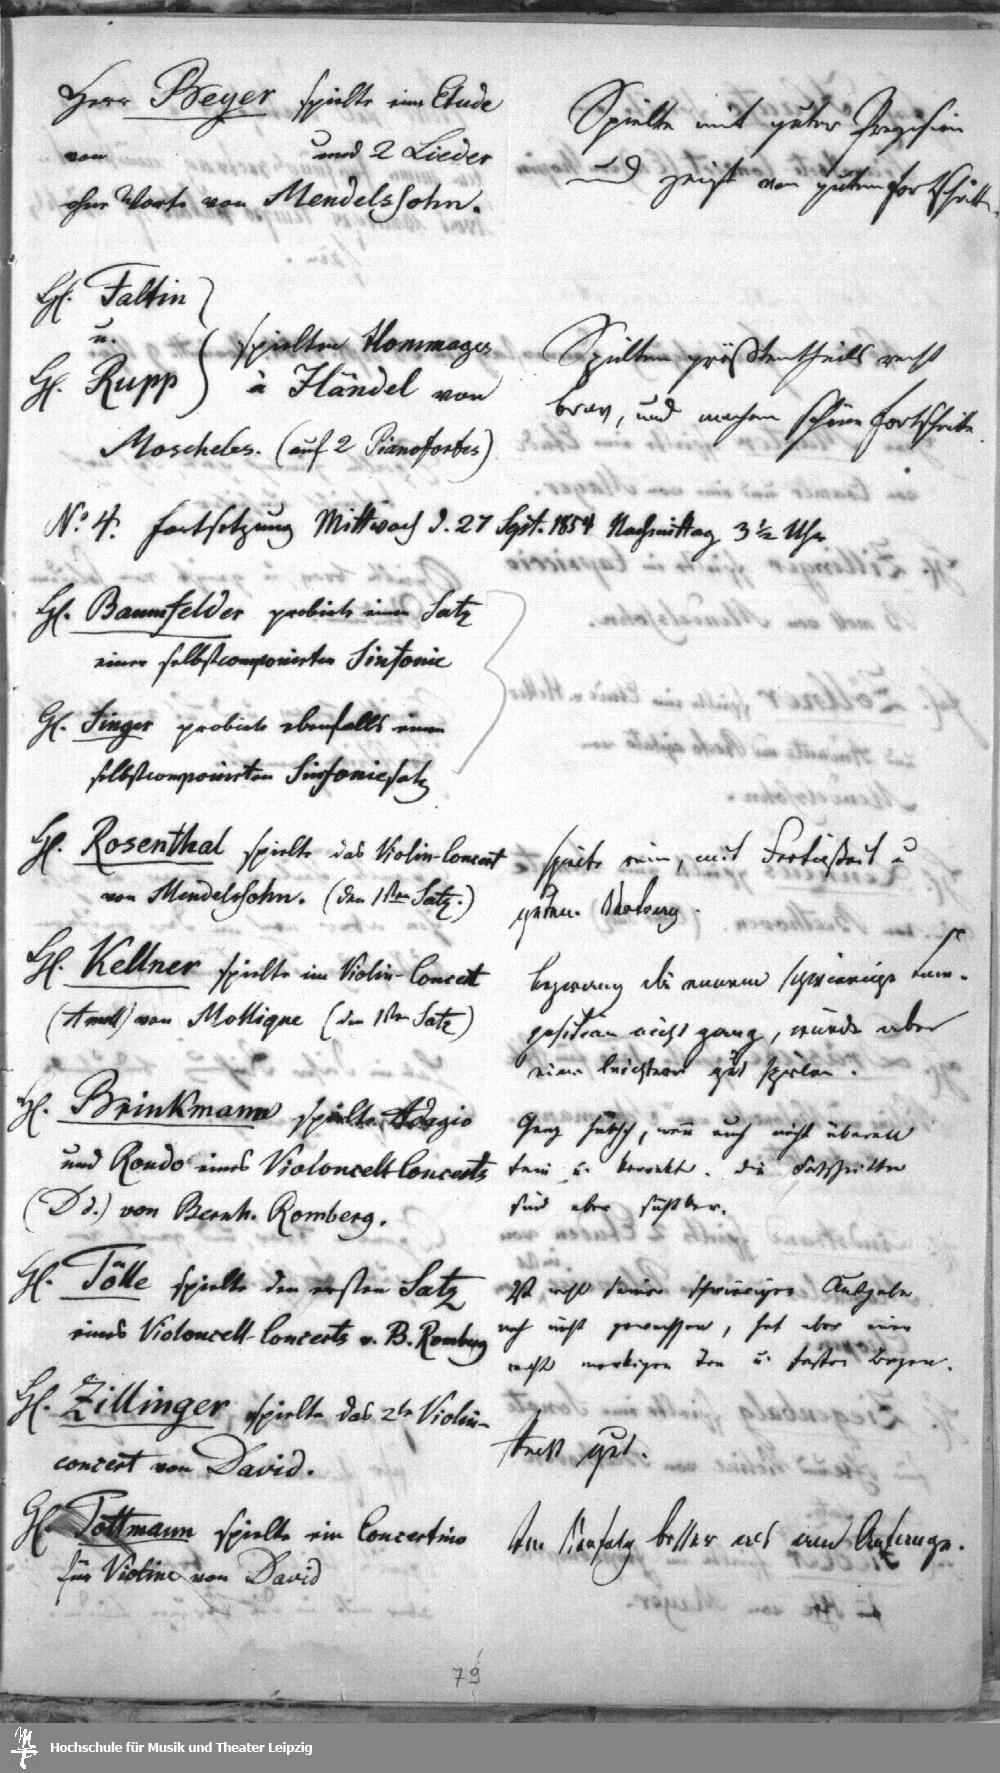 Herr Beyer spielte eine Etude
von und 2 Lieder
ohne Worte von Mendelssohn.
Spielte mit guter Präzision
und zeigt von guten Fortschritten.
H. Faltin
u.
H. Rupp
spielten Hommages
à Händel von
Moscheles. (auf 2 Pianofortes)
Spielten größtentheils recht
brav, und machen schöne Fortschritte.
No. 4. Fortsetzung Mittwoch d. 27 Sept. 1854 Nachmittag 3 ½ Uhr
H. Baumfelder probirte einen Satz
einer selbstcomponirten Sinfonie
H. Singer probirte ebenfalls einen
selbstcomponirten Sinfoniesatz
H. Rosenthal spielte das Violin-Concert
von Mendelssohn. (den 1sten Satz.)
spielte rein, mit Fertigkeit u
guten
H. Kellner spielte im Violin-Concert
(A moll) von Molique (den 1sten Satz)
die enorm schwierige Com-
position nicht ganz, würde aber
eine leichtere gut spielen.
H. Brinkmann spielte Adagio
und Rondo eines Violoncell Concerts
(D d.) von Bernh. Romberg.
Ganz hübsch, wenn auch nicht überall
rein u. korrekt. Die Fortschritte
sind aber sichtbar.
H. Tölle spielte den ersten Satz
eines Violoncell-Concerts v. B. Romberg
Ist wohl seiner schwierigen Aufgabe
noch nicht gewachsen, hat aber einen
recht markigen Ton u. festen Bogen.
H. Zillinger spielte das 2te Violin-
concert von David.
Recht gut.
H. Tottmann spielte ein Concertino
für Violine von David
besser als am Anfange.
79
Hochschule für Musik und Theater Leipzig